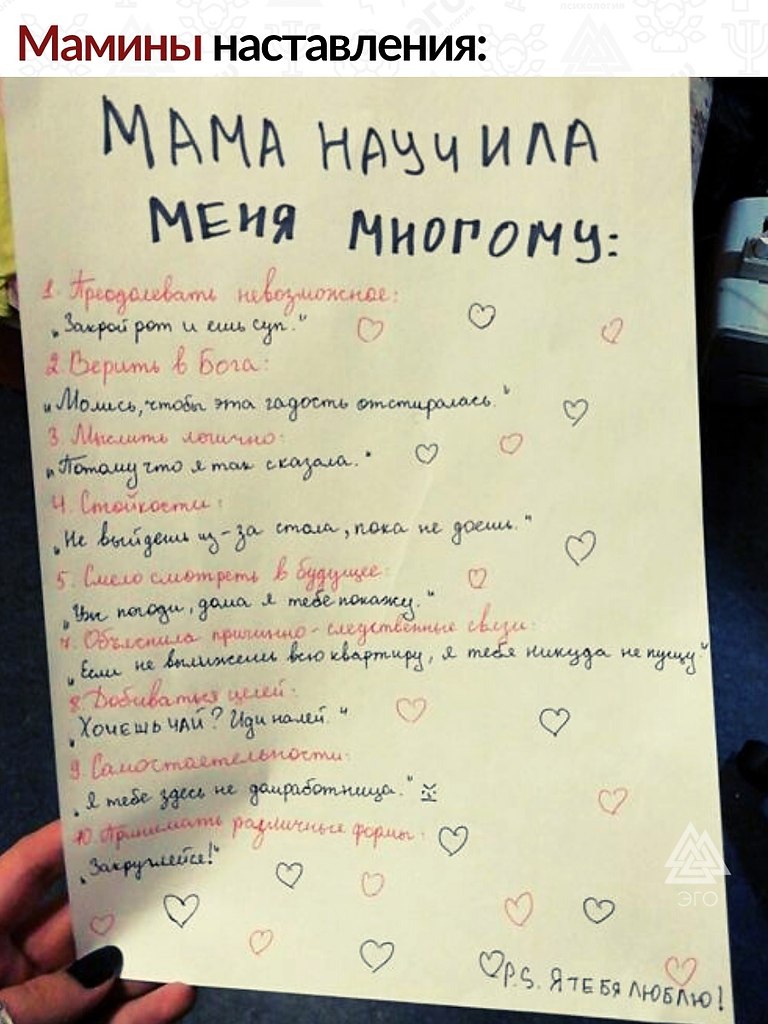 Мамины наставления:
МАМА НАУЧИЛА
МЕНЯ МНОГОМУ:
1. Преодолевать невозможное:
„Закрой рот и ешь суп."
2. Верить в Бога:
„Молись, чтобы эта гадость отстиралась."
3. Мыслить логично:
„Потому что я так сказала."
4. Стойкости:
„Не выйдешь из-за стола, пока не доешь."
5. Смело смотреть в будущее:
„Ну погоди, дома я тебе покажу."
7. Объяснила причинно-следственные связи:
„Если не вылижешь всю квартиру, я тебя никуда не пущу"
8. Добиваться целей:
„ХОЧЕШЬ ЧАЙ? Иди налей."
9. Самостоятельности:
„Я тебе здесь не домработница."
10. Принимать различные формы:
„Закругляйся!"
P.S. Я ТЕБЯ ЛЮБЛЮ!
ЭГО